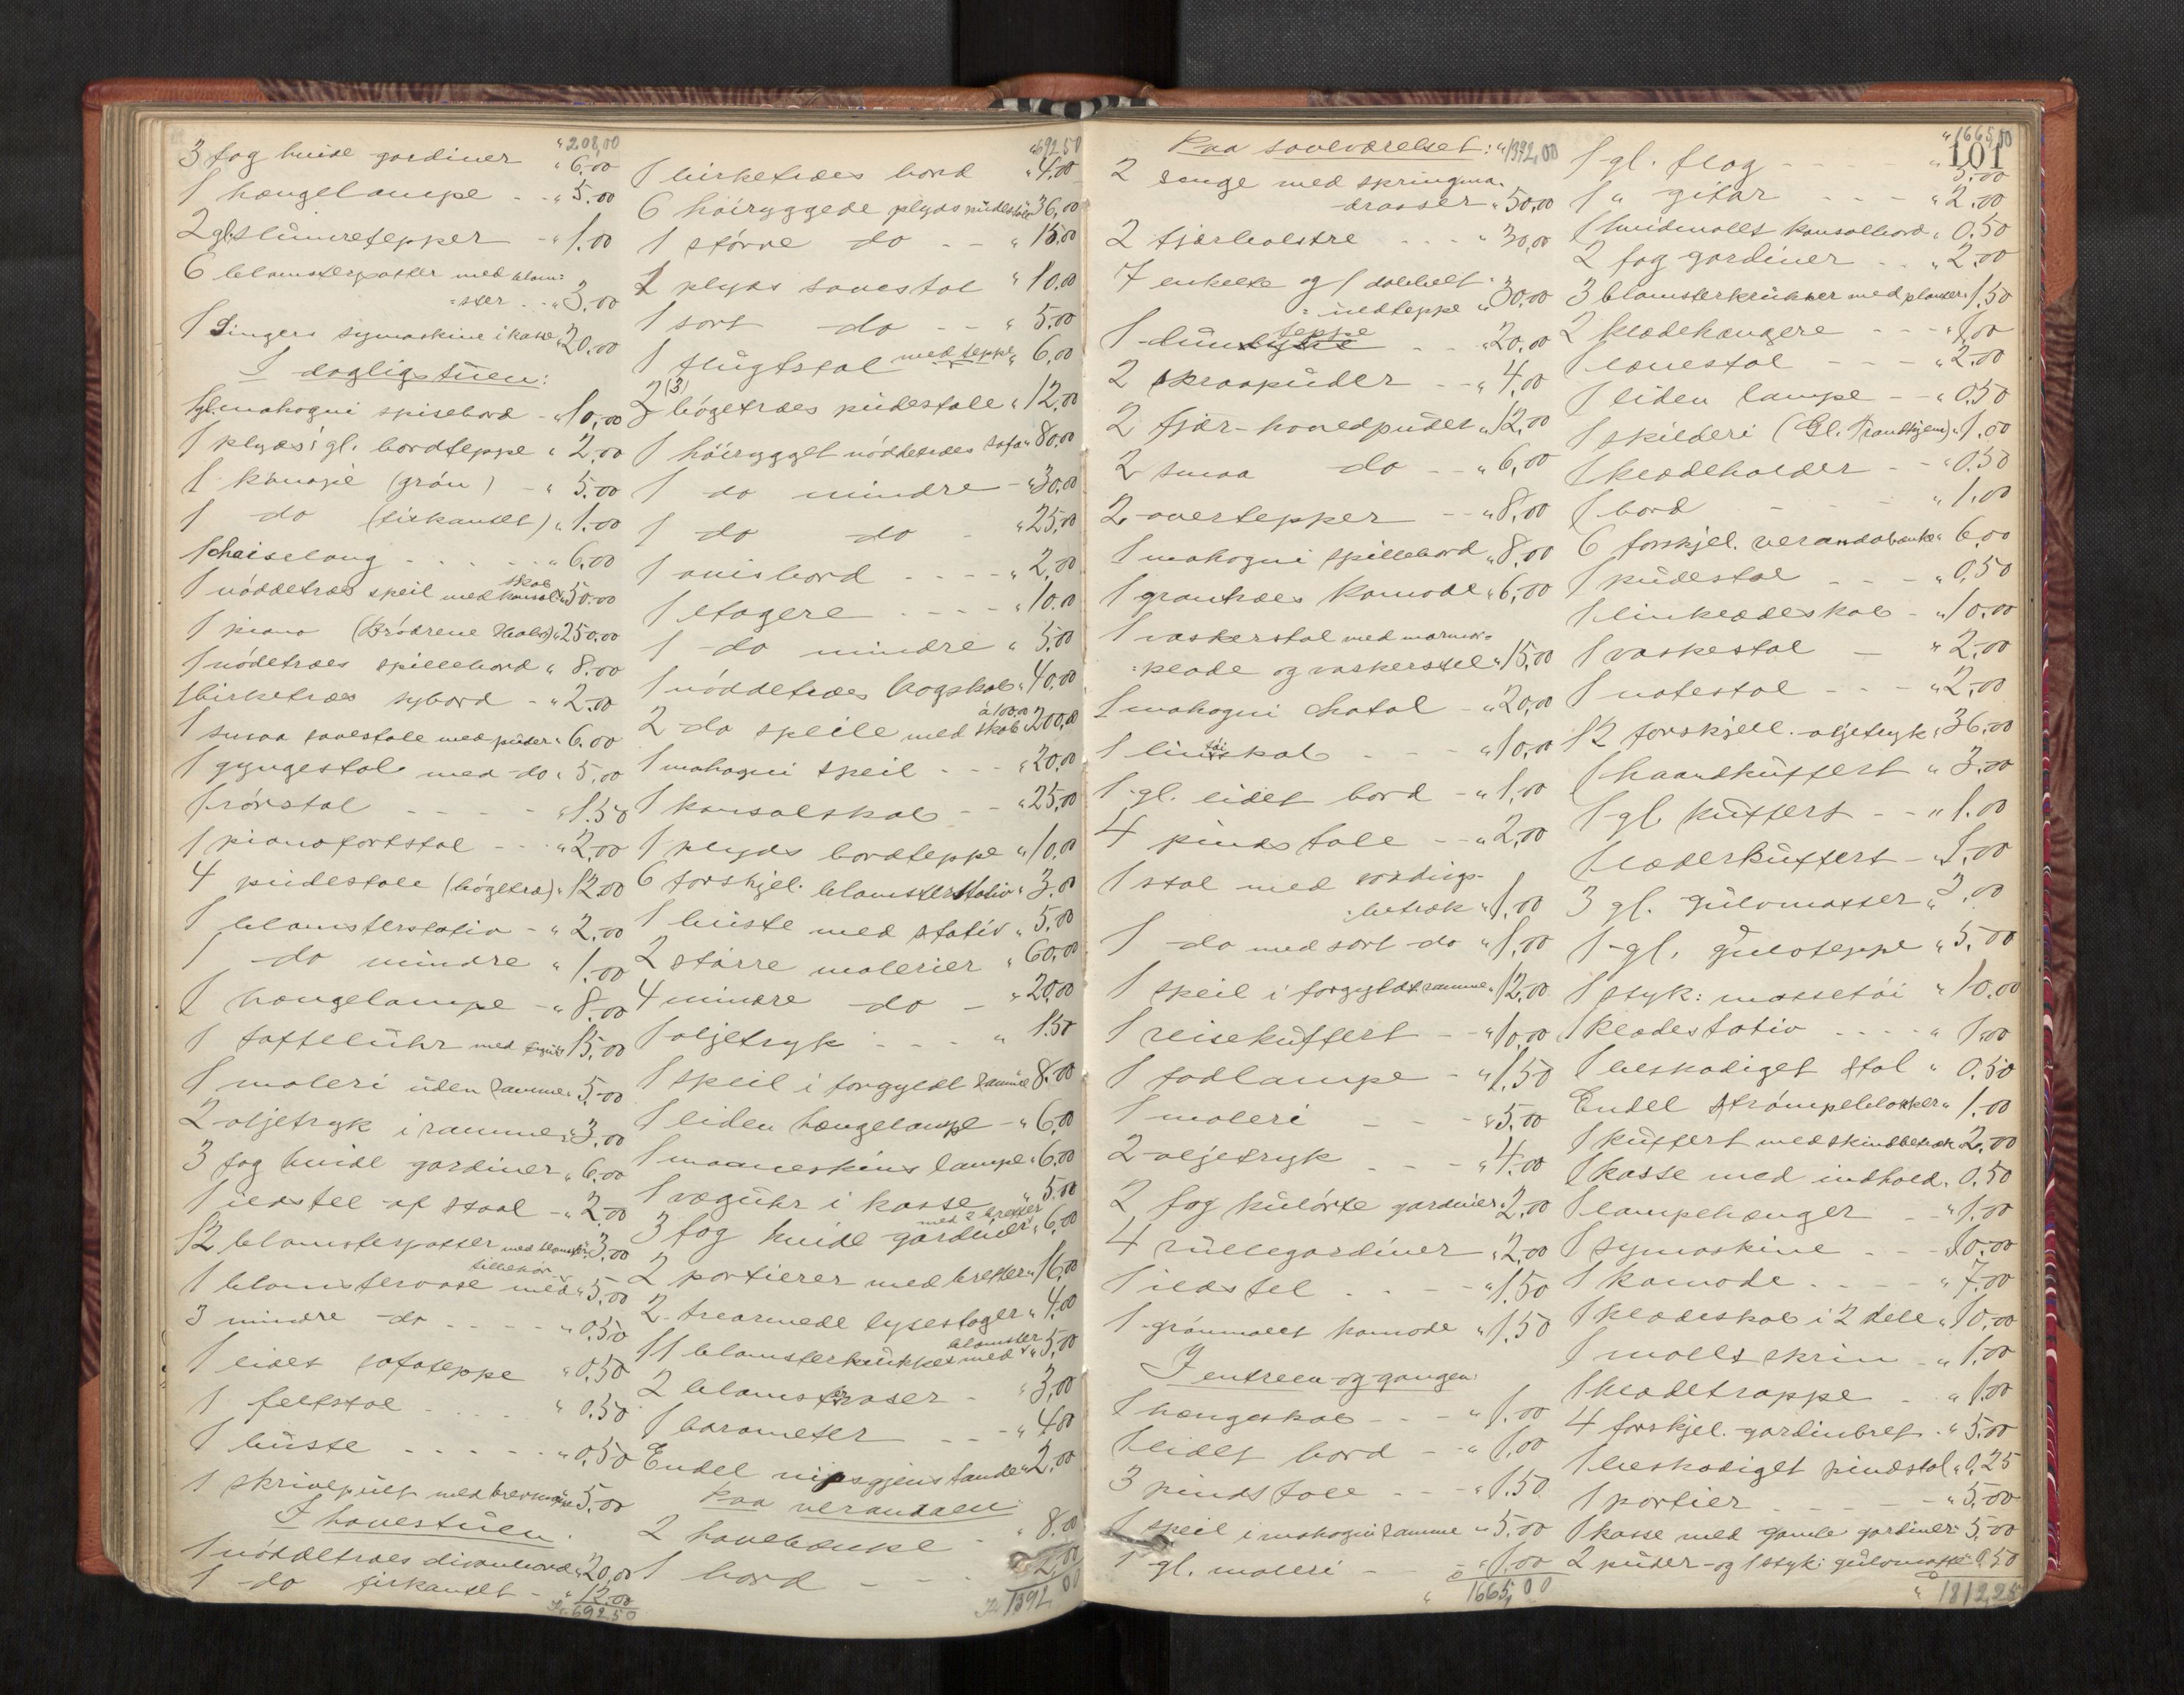 " 208,00
3 fag hvide gardiner " 6.00
1 hængelampe - - " 5.00
2 gl. slumretepper - " 1.00
6 blomsterpotter med blom=
=ster - - " 3.00
1 Singers symaskine i kasse " 20.00
I dagligstuen:
1 gl. mahogni spisebord - " 10,00
1 plyds gl. bordteppe " 2,00
1 kanapé (grön) - " 5.00
1 do (firkantet) " 1.00
1 chaiselong - - - - " 6.00
1 nöddetræs speil med konsol skab " 50.00
1 piano (Brödrene Hals) " 250.00
1 nödetræs spillebord " 8.00
1 birketræs sybord - " 2.00
1 smaa lænestole med puder " 6.00
1 gyngestol med do " 5.00
1 rörstol - - - - " 1.50
1 pianofortstol - - " 2.00
4 pudestole (bögetræ) " 12.00
1 blomsterstativ - " 2.00
1 do mindre " 1.00
1 hængelampe - " 8.00
1 taffeluhr med 15.00
1 maleri uden ramme " 5.00
2 oljetryk i ramme " 3.00
3 fag hvide gardiner " 6.00
1 ildstel af staal - " 2.00
12 blomsterpotter med blomster " 3.00
1 blomstervase med tilbehör " 5.00
3 mindre do - - - - " 0.50
1 lidet sofateppe " 0.50
1 feltstol - - - - " 0.50
1 büste - - - - - " 0.50
1 skrivepult med 5.00
I havestuen.
1 nöddetræs divanbord " 20,00
1 do firkantet - " 12.00
Kr. 692.50
" 692.50
1 birketræs bord " 4.00
6 höiryggede plyds pudestole " 36,00
1 större do - - " 15.00
2 plyds lænestol " 10.00
1 sort do - - " 5.00
1 flugtstol med teppe " 6.00
2 (3) bögetræs pudestole " 12,00
1 höirygget nöddetræs sofa " 80.00
1 do mindre - " 30.00
1 do do - " 25,00
1 avisbord - - - - " 2,00
1 etagere - - - - " 10.00
1 do mindre " 5.00
1 nöddetræs bogskab " 40.00
2 do speile med skab à 100.00 " 200,00
1 mahogni speil - - " 20.00
1 konsolskab - - " 25,00
1 plyds bordteppe " 10.00
6 forskjel. blomsterstativ " 3.00
1 büste med stativ " 5.00
2 större malerier " 60.00
4 mindre do - " 20.00
1 oljetryk - - - " 1.50
1 speil i forgyldt ramme 8.00
1 liden hængelampe - " 6.00
1 maaneskins lampe " 6.00
1 væguhr i kasse " 5.00
3 fag hvide gardiner med 2 bretter " 6.00
2 portierer med bretter " 16.00
2 trearmede lysestager " 4.00
11 blomsterkrukker med blomster " 5.00
2 blomstervaser - " 3.00
1 barometer - - - " 4.00
Endel nipsgjenstande " 2.00
Paa verandaen
2 havebænke - " 8.00
1 bord - - - 2.00
Kr 1392,00
Paa soveværelset: " 1392,00
2 senge med springma-
drasser " 50,00
2 fjærbolstre - - - " 30,00
7 enkelte og 1 dobbelt
=uldteppe " 30.00
1 dunteppe - - " 20.00
2 skraapuder - - " 4.00
2 fjær-hovedpuder " 12.00
2 smaa do - - " 6,00
2 overtepper - - " 8,00
1 mahogni spillebord " 8,00
1 grantræs komode " 6,00
1 vaskerstol med marmor=
=plade og vaskerstel " 15,00
1 mahogni chatol - " 20,00
1 lintöiskab - - - " 10,00
1 gl. lidet bord - " 1,00
4 pindstole - - " 2,00
1 stol med
betræk " 1.00
1 do med sort do " 1,00
1 speil i forgyldt ramme " 12.00
1 reisekuffert - - " 10.00
1 fodlampe - - " 1,50
1 maleri - - - " 5.00
2 oljetryk - - - " 4.00
2 fag kulörte gardiner " 2.00
4 rullegardiner " 2,00
1 ildstel - - - " 1.50
1 grönmalet komode " 1,50
I entreen og gangen:
1 hængeskab - - - " 1.00
1 lidet bord - - " 1.00
3 pindstole - - - " 1.50
1 speil i mahogni ramme " 5.00
1 gl. maleri - - " 1.00
" 1665,00
" 1665,00
101
1 gl. flag - - - - " 5.00
1 " gitar - - - " 2.00
1 hvidmalet konsolbord " 0.50
2 fag gardiner - - " 2.00
3 blomsterkrukker med planter " 1,50
2 klædehængere - - - " 1,00
1 lænestol - - - " 2.00
1 liden lampe - - " 0.50
1 skilderi (Gl. Trondhjem) " 1.00
1 klædeholder - - " 0.50
1 bord - - - " 1.00
6 forskjel. verandabænke " 6.00
1 pudestol - - - " 0,50
1 linklædeskab - " 10.00
1 vaskestol - " 2,00
1 natestol - - - " 2,00
12 forskjell. oljetryk " 36,00
1 haandkuffert " 3.00
1 gl. kuffert - - " 1.00
1 læderkuffert - " 1.00
3 gl. gulvmatter " 3.00
1 gl. gulvteppe " 5.00
1 styk: mattetöi " 10.00
1 klædestativ - - - - " 1.00
1 beskadiget stol " 0.50
Endel strömpeblokker " 1.00
1 kuffert med skindbetræk " 2.00
1 kasse med indhold " 0.50
1 lampehænger - - " 1.00
1 symaskine - - - 10.00
1 komode - - - - " 7.00
1 klædeskab i 2 dele " 10.00
1 malet skrin - " 1.00
1 klædetrappe - " 1.00
4 forskjel. gardinbret - " 5.00
1 beskadiget pindstol " 0,25
1 portier - - - - " 5.00
1 kasse med gamle gardiner " 5.00
2 puder og 1 styk: gulvmatte " 0.50
" 1812,25